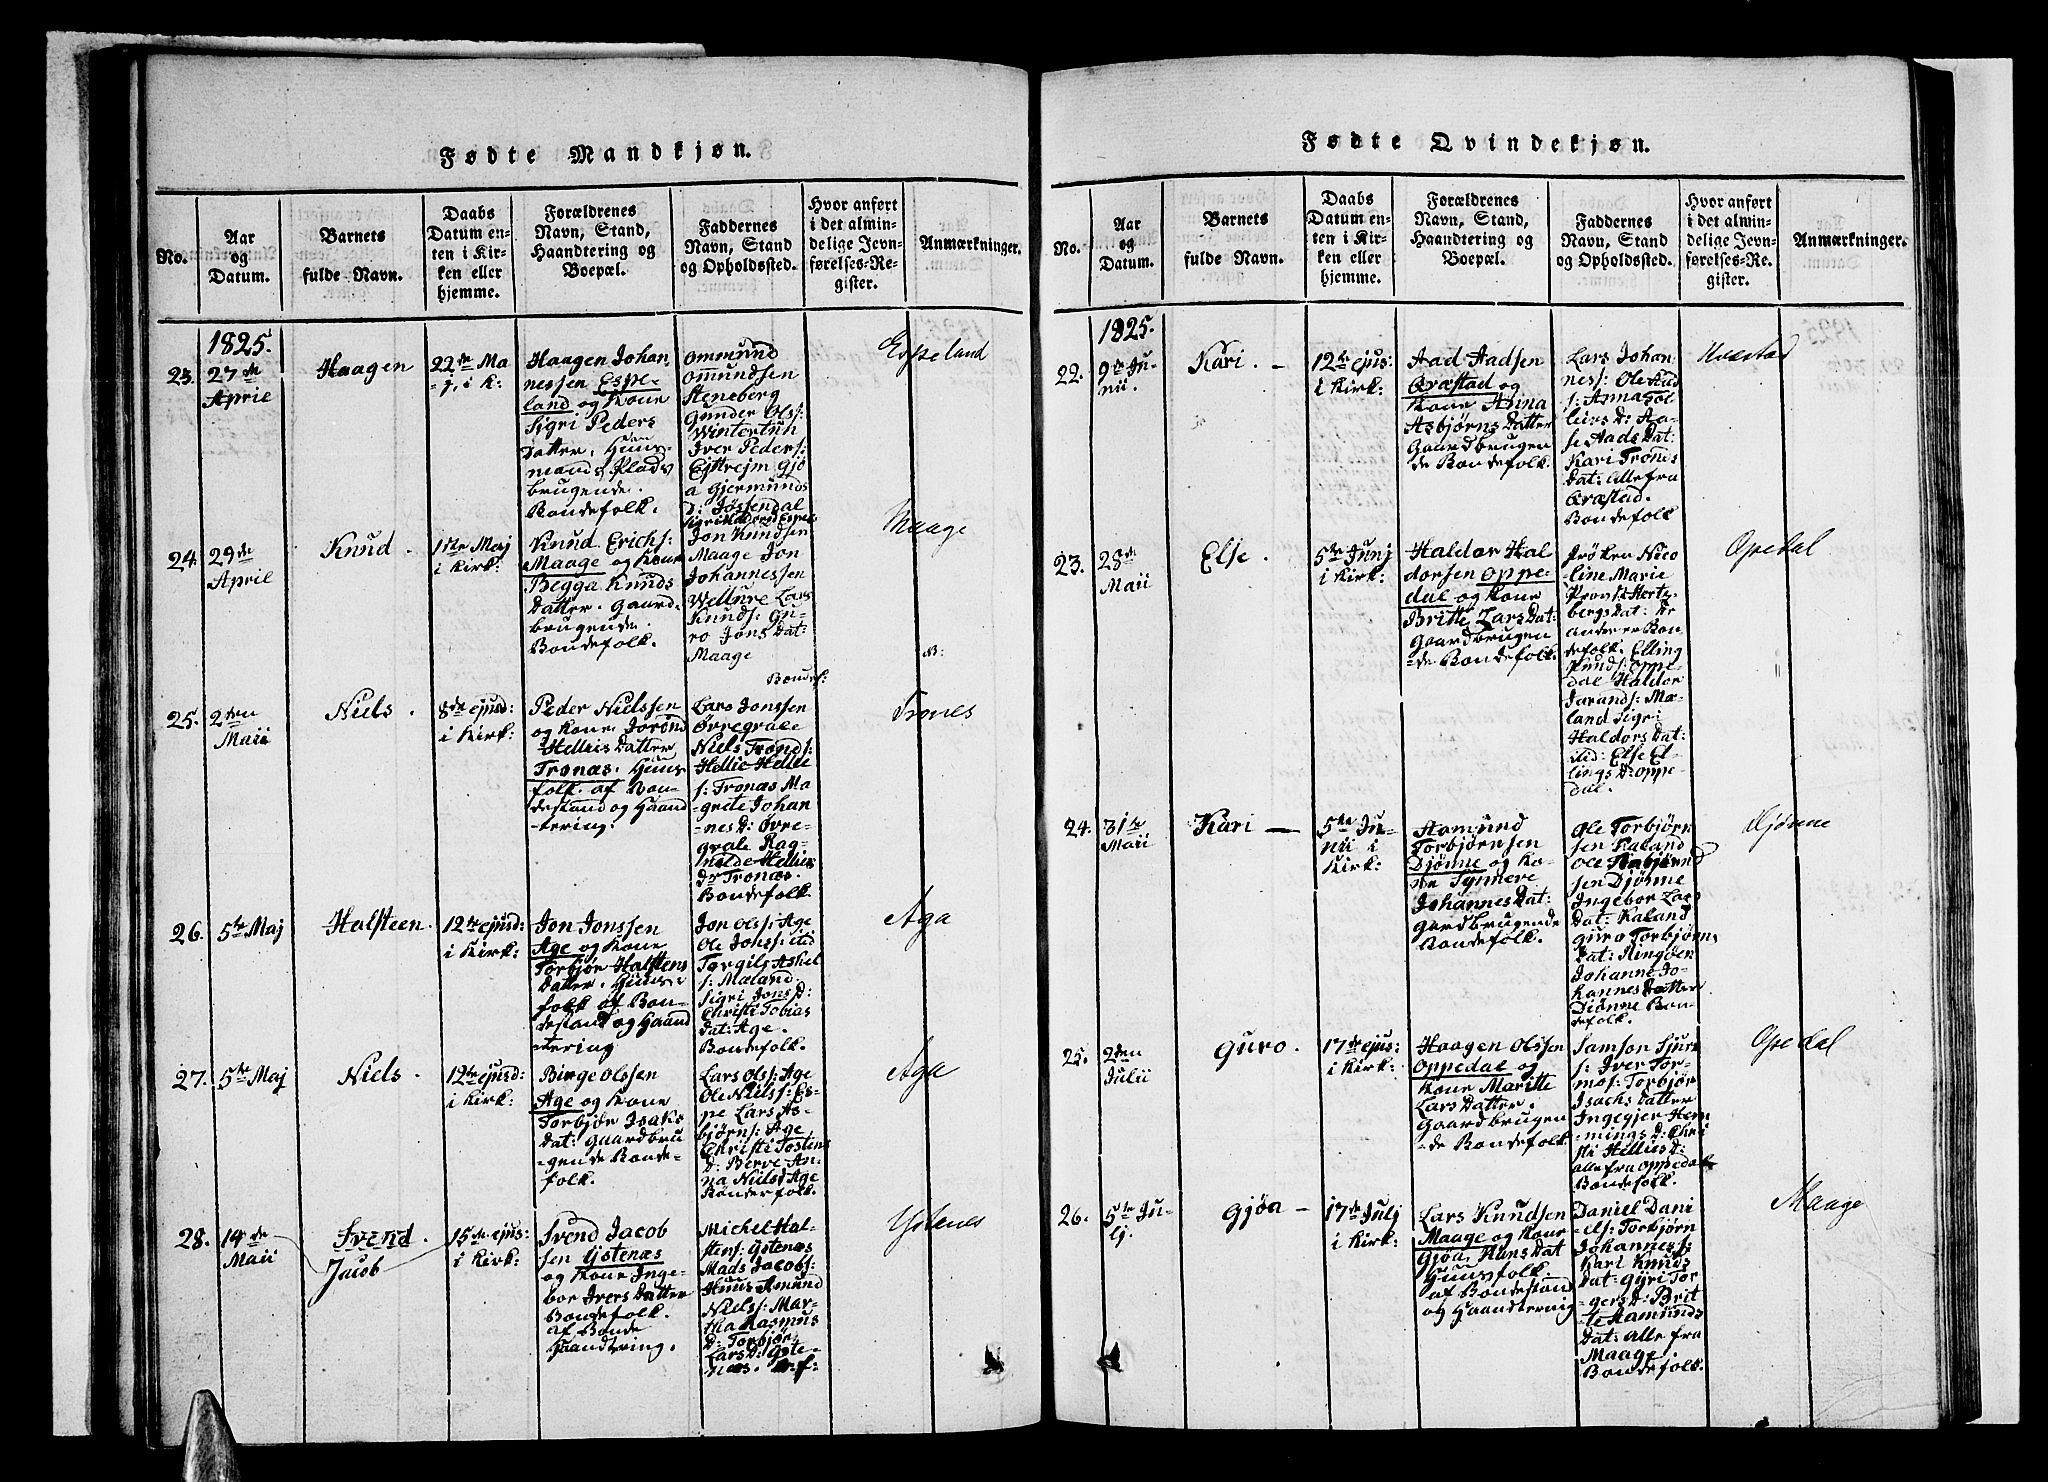 Fødte Mandkjøn.
No.
Aar
og
Datum.
Barnets
fulde Navn.
Daabs
Datum en-
ten i Kir-
ken eller
hjemme.
Forældrenes
Navn, Stand,
Haandtering og
Boepæl.
Faddernes
Navn, Stand
og Opholdssted.
Hvor anført
i det almin-
delige Jevn-
førelses-Re-
gister.
Anmærkninger.
1825.
23.
27de
Aprie
Haagen
22de Ma-
j, i K:
Haagen Johan-
nessen Espe-
land og Kone
Sigri Peders
Datter, Huus-
mands Plads
brugende.
Bondefolk.
Ommund
Ommundsen
Steneberg
Gunder Olss:
Wintertun
Iver Peders:
Ejttrejm Gjø
a Gjermunds
D: Jøssendal
Espeland
24.
29de
April
Knud.
1ste Maj
i Kirk:
Knud Erichs:
Maage og Kone
Begga Knuds
Datter. Gaard-
brugende.
Bondefolk.
Jon Knudsen
Maage Jon
Johannessen
Wellure Lars
Knuds: Gu-
ro Jons Dat:
Maage
Bondef:
Maage
B:
25.
2den
Maii
Niels.
8de ejusd:
i Kirk:
Peder Nielssen
og Kone Jorønd
Hellies Datter
Tronæs. Huus
folk af Bon-
destand og Haand
tering.
Lars Jonssen
Øvregrale
Niels Tronds:
Hellie Hellie
s: Tronæs Ma-
grete Johan-
nes D: Øvre-
grale Rag-
nilde Hellies
Dr Tronæs.
Bondefolk.
Trones
26.
5te Maj
Halsteen.
12te ejusd:
i Kirk:
Jon Jonssen
Age og Kone
Torbjør Halstens
Datter. Huus-
folk af Bon-
destand og Haand
tering
Jon Olss: Age
Ole Johss: itid
Torgils Askel
s: Maland
Sigri Jons D:
Christi Tobias
Dat: Age.
Bondefolk.
Aga
27.
5te Maj
Niels.
12te ejusd:
i Kirk:
Birge Olssen
Age og Kone
Torbjør Isaks
Dat: Gaardbru
gende Bonde-
folk.
Lars Olss: Age
Ole Nielss: Es-
pe Lars As-
bjørns: Age
Christi Tostens
D: Berve An-
na Niels D Age
Bønderfolk.
Aga
28.
14de
Maii
Svend
Jacob
15de ejus:
i Kirk:
Svend Jacob
sen Ystenæs
og Kone Inge-
bor Ivers Datter
Bondefolk.
af Bonde
Haandtering.
Michel Hal-
stens: Ystenæs
Mads Jacobs:
Huus Amund
Nielss: Mar-
tha Rasmus
D: Torbjør
Lars D: Yste-
næs. B:f:
Ystenes
Fødte Qvindekjøn.
No.
Aar
og
Datum.
Barnets
fulde Navn.
Daabs
Datum en-
ten i Kir-
ken eller
hjemme.
Forældrenes
Navn, Stand,
Haandtering og
Boepæl.
Faddernes
Navn, Stand
og Opholdssted.
Hvor anført
i det almin-
delige Jevn-
førelses-Re-
gister.
Anmærkninger.
1825.
22.
9de Ju-
nii.
Kari. —
12te ejus:
i Kirk:
Aad Aadsen
Qvæstad og
Kone Anna
Asbjørns Datter
Gaardbrugen
de Bondefolk.
Lars Johan
ness: Ole Aad
s: Anna Sol
leivs D: Aa-
se Aads Dat:
Kari Trønis
Dat: Alle fra
Qvæstad.
Bondefolk
Hvæstad
23.
28de
Maii
Else.
5te Junj
i Kirk:
Haldor Hal
dorsen Oppe-
dal og Kone
Britte Lars Dat:
Gaardbrugen
de Bondefolk.
Frøken Nico
line Marie
Provst Hertz-
bergs Dat: De
andre er Bon-
defolk. Elling
Knuds: Oppe-
dal Haldor
Jarands: Mæ-
land Sigri
Haldors Dat:
itid: Else El-
lings D: Oppe-
dal.
Opedal
24.
31te
Maii
Kari —
5te Ju-
nii i
Kirk:
Aamund
Torbjørnsen
Djønne og Ko-
ne Synneve
Johannes Dat:
Gaardbrugende
Bondefolk.
Ole Torbjørn
sen Kaland
Ole
sen Djønne
Ingebor Lars
Dat: Kaland
Guro Torbjørns
Dat: Ringøen
Johanne Jo-
hannes Datter
Djønne Bon-
defolk.
Djønne
25.
2den
Julii
Guro.
17de ejus:
i Kirk:
Haagen Olssen
Oppedal og
Kone Maritte
Lars Datter.
Gaardbrugen
de Bondefolk.
Samson Sjur
s: Iver Tor-
mos: Torbjør
Isachs Datter
Ingegjer Hem
mings D: Chri
sti Hellies D:
alle fra Oppedal
Bondefolk.
Opedal
26.
5te Ju-
lj.
Gjøa —
17de Julj
i Kirk:
Lars Knudsen
Maage og Kone
Gjøa Hans Dat
Huusfolk.
af Bondestand
og Haandtering
Daniel Dani
els: Torbjørn
Johanness:
Kari Knuds
Dat: Gyri Tor-
gers D: Brit
te Aamunds
Dat: Alle fra
Maage
Bondefolk.
Maage